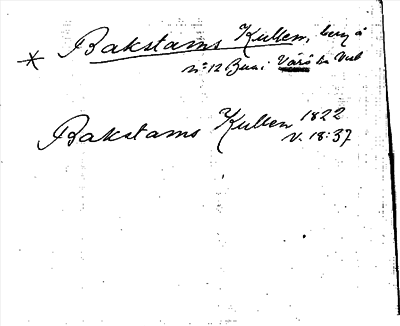 * Bakstams Kullen, berg å
n:o 12 Värö
Bakstams Kullen 1822
v. 18:37